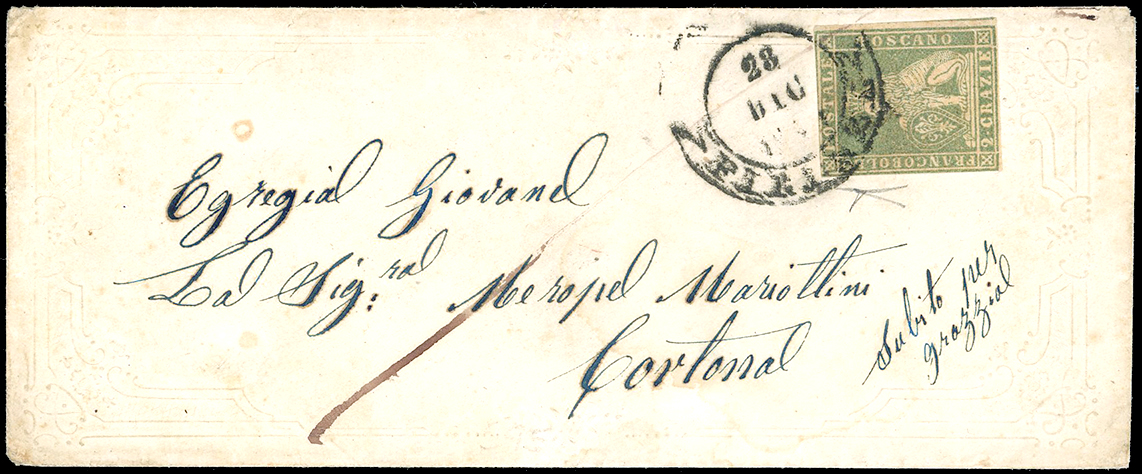 23
DIC
FRANCOBOLLO
POSTALE
TOSCANO
2 CRAZIE
Egregia Giovane
La Sig:ra Merope Mariottini
Cortona
Subito per
grazzia